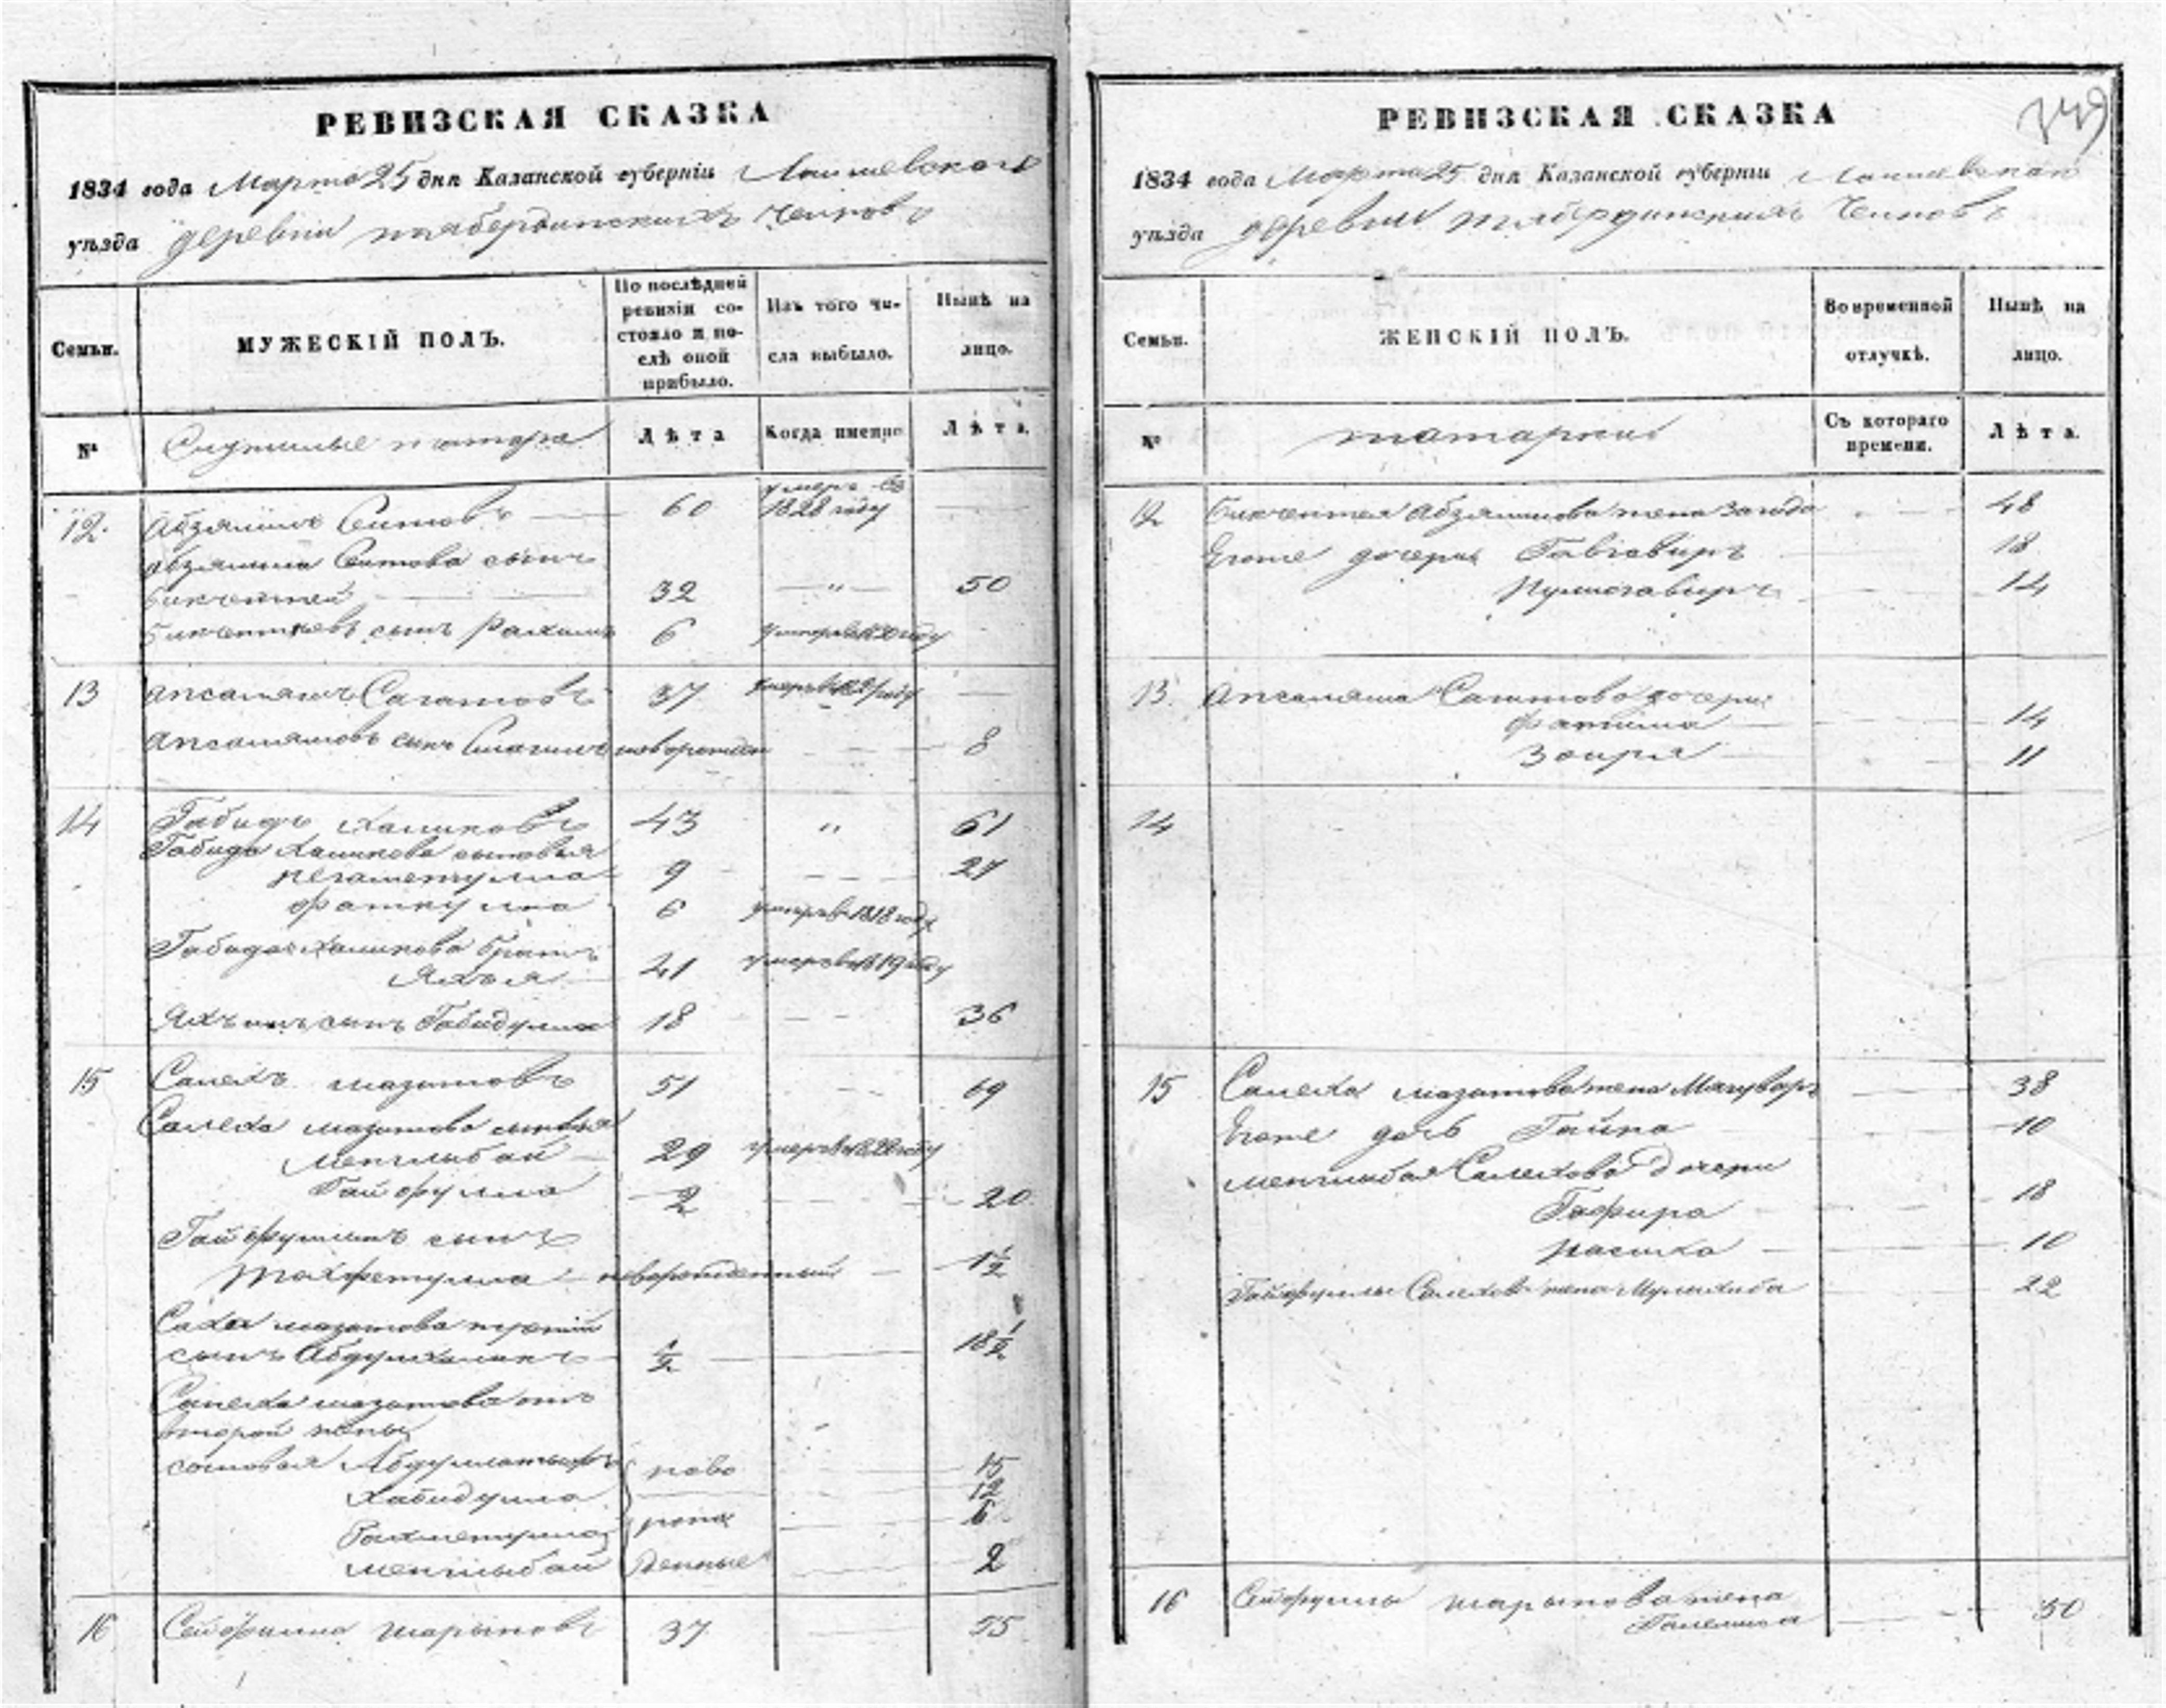 РЕВИЗСКАЯ СКАЗКА
1834 года Марта 25 дня Казанской губерніи Лаишевскаго
уѣзда деревни тябердинскихъ Челновъ
Семьи.
МУЖЕСКІЙ ПОЛЪ.
По послѣдней ревизіи состояло и послѣ оной прибыло.
Изъ того числа выбыло.
Нынѣ на лицо.
№
Служилые татара
Лѣта
Когда именно
Лѣта.
12. Абзялилъ Сеитовъ 60 умеръ въ 1828 году
Абзялила Сеитова сынъ
Бикчентей 32 " 50
Бикчентеевъ сынъ Рахимъ 6 умеръ в 1820 году
13 Апсалямъ Сагитовъ 37
Апсалямовъ сынъ новорожден 8
14 Габидъ Халиковъ 43 " 61
Габида Халикова сыновья
Негаметулла 9 27
Фаткулла 6 умеръ в 1818 году
Габида Халикова братъ
Яхъя 21 умеръ в 1819 году
Яхъинъ сынъ Габидулла 18 36
15 Салехъ мазитовъ 51 69
Салеха мазитова сыновья
Менглыбай 29 умеръ в 1820 году
Гайфулла 2 20
Гайфуллинъ сынъ
Тахфетулла новорожденный 1½
мазитова третій
сынъ Абдулхаликъ ½ 18½
Салеха мазитова отъ
второй жены
сыновья Абдуллатыфъ ново 15
Хабидулла 12
Рахметулла рож 6
менглыбай денные 2
16 Сейфулла шариповъ 37 55
РЕВИЗСКАЯ СКАЗКА
1834 года Марта 25 дня Казанской губерніи Лаишевскаго
уѣзда деревни тябердинскихъ Челновъ
Семьи.
ЖЕНСКІЙ ПОЛЪ.
Во временной отлучкѣ.
Нынѣ на лицо.
№
татарки
Съ котораго времени.
Лѣта.
12 Бикчентея Абзялилова жена Загида 48
Егоже дочери 18
14
13. Апсаляма Сагитова дочери
Фатима 14
Заиря 11
14
15 Салеха мазитова жена 38
Егоже дочь Гайна 10
менглыбая Салехова дочери
Гафира 18
10
Гайфуллы Салехова жена 22
16 Сейфуллы шарыпова жена
Галелиба 50